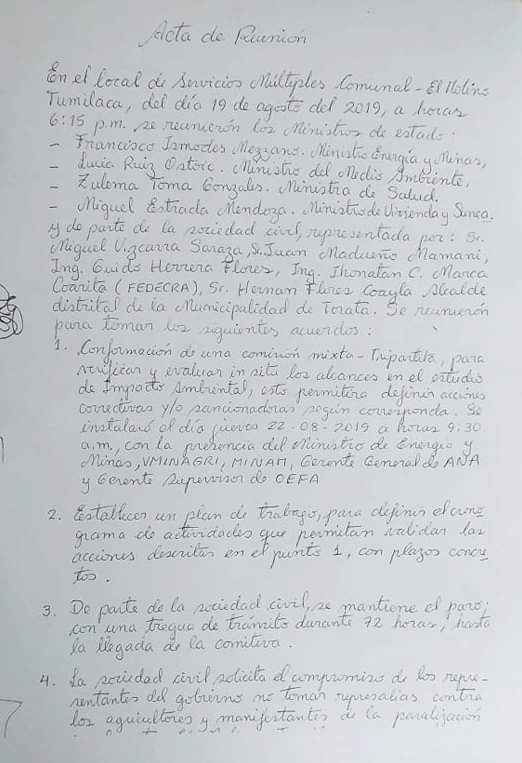 Acta de Reunión
En el local de Servicios Múltiples Comunal - El Molino
Tumilaca, del día 19 de agosto del 2019, a horas
6:15 p.m. se reunierón los Ministros de estado.
- Francisco Ismodes Mezzano. Ministro Energía y Minas,
- Lucia Ruiz Ostoic. Ministra del Medio Ambiente.
- Zulema Toma Gonzales. Ministra de Salud.
- Miguel Estrada Mendoza. Ministro de Vivienda y Sanea.
y de parte de la sociedad civil, representada por: Sr.
Miguel Vizcarra Saraza, Sr. Juan Madueño Mamani,
Ing. Guido Herrera Flores, Ing. Jhonatan C. Marca
Coarita (FEDECRA), Sr. Hernan Flores Coayla Alcalde
distrital de la Municipalidad de Torata. Se reunierón
para tomar los siguientes acuerdos:
1. Conformación de una comisión mixta - Tripartita, para
verificar y evaluar in situ los alcances en el estudio
de Impacto Ambiental, esto permitira definir acciones
correctivas y/o sancionadoras según corresponda. Se
instalará el día jueves 22-08-2019 a horas 9:30
a.m, con la presencia del Ministro de Energía y
Minas, VMINAGRI, MINAM, Gerente General de ANA
y Gerente Supervisor de OEFA
2. Establecer un plan de trabajo, para definir el crono
grama de actividades que permitan validar las
acciones descritas en el punto 1, con plazos concre
tos.
3. De parte de la sociedad civil, se mantiene el paro;
con una tregua de tránsito durante 72 horas, hasta
la llegada de la comitiva.
4. La sociedad civil solicita el compromiso de los repre-
sentantes del gobierno no tomar represalias contra
los agricultores y manifestantes de la paralización